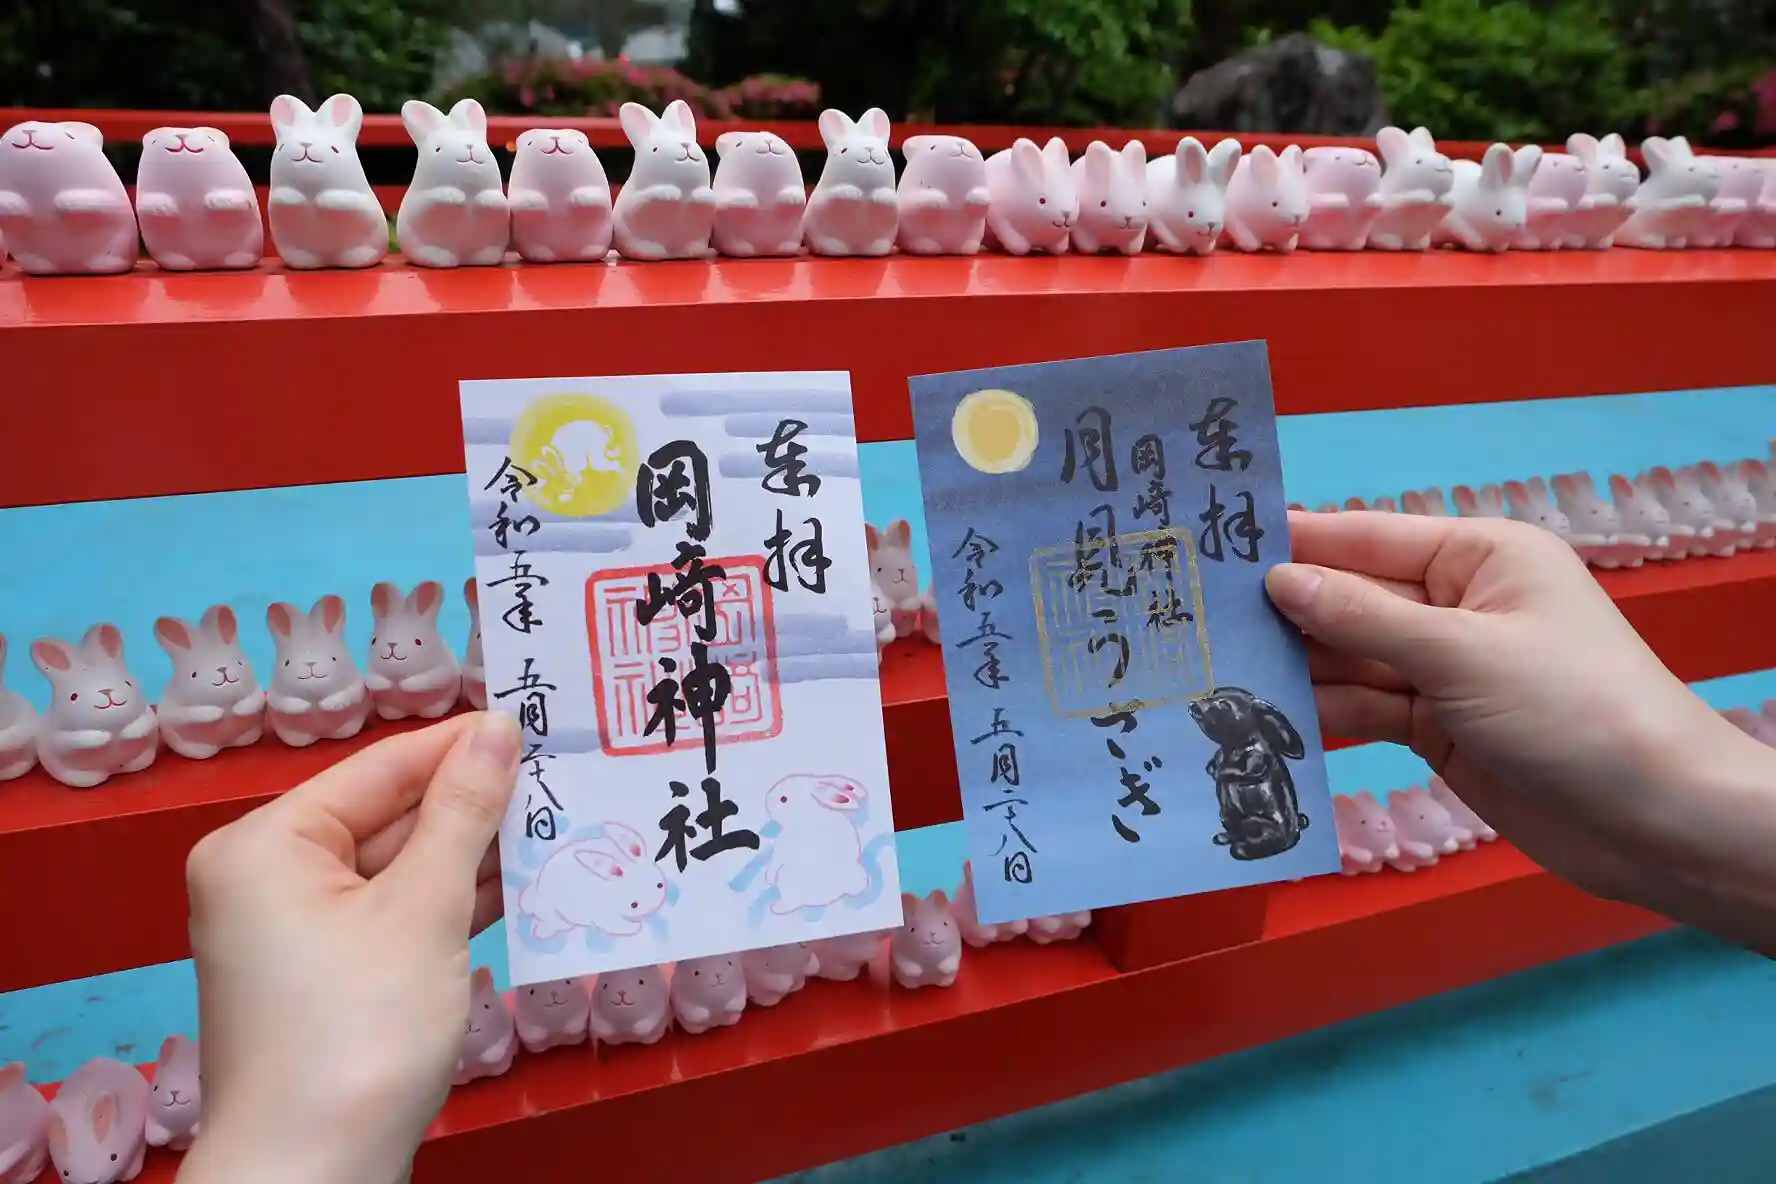 奉拝
岡崎神社
令和五年 五月二十八日
奉拝
岡崎神社
月見うさぎ
令和五年 五月二十八日